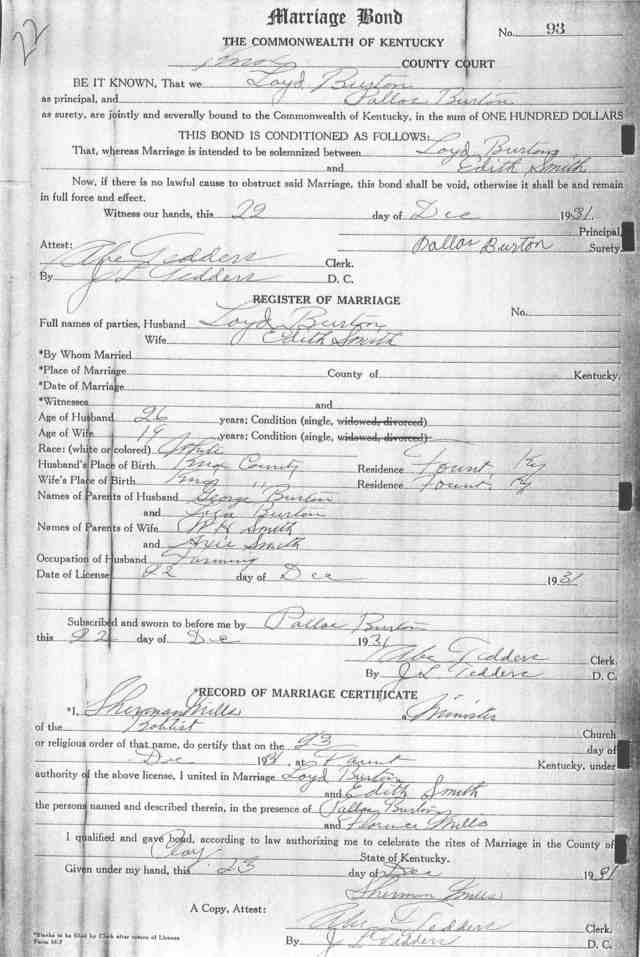 22
Marriage Bond
No. 93
THE COMMONWEALTH OF KENTUCKY
Knox COUNTY COURT
BE IT KNOWN, That we Loyd Burton
as principal, and Dallas Burton
as surety, are jointly and severally bound to the Commonwealth of Kentucky, in the sum of ONE HUNDRED DOLLARS
THIS BOND IS CONDITIONED AS FOLLOWS:
That, whereas Marriage is intended to be solemnized between Loyd Burton
and Edith Smith
Now, if there is no lawful cause to obstruct said Marriage, this bond shall be void, otherwise it shall be and remain
in full force and effect.
Witness our hands, this 22 day of Dec 1931.
Principal
Dallas Burton Surety.
Attest: Abe Tedders Clerk.
By J L Tedders D. C.
REGISTER OF MARRIAGE
No.
Full names of parties, Husband Loyd Burton
Wife Edith Smith
*By Whom Married
*Place of Marriage County of Kentucky.
*Date of Marriage
*Witnesses and
Age of Husband 26 years; Condition (single, widowed, divorced)
Age of Wife 19 years; Condition (single, widowed, divorced)
Race: (white or colored) White
Husband's Place of Birth Knox County Residence Fount, Ky
Wife's Place of Birth Knox " Residence Fount, Ky
Names of Parents of Husband George Burton
and Burton
Names of Parents of Wife W H Smith
and Axie Smith
Occupation of Husband Farming
Date of License 22 day of Dec 1931
Subscribed and sworn to before me by Dallas Burton
this 22 day of Dec 1931
Abe Tedders Clerk.
By J L Tedders D. C.
*RECORD OF MARRIAGE CERTIFICATE
*I, Sherman Mills a Minister
of the Baptist Church
or religious order of that name, do certify that on the 23 day of
Dec 1931, at Kentucky, under
authority of the above license, I united in Marriage Loyd Burton
and Edith Smith
the persons named and described therein, in the presence of Dallas Burton
and Florence Mills
I qualified and gave bond, according to law authorizing me to celebrate the rites of Marriage in the County of
Clay State of Kentucky.
Given under my hand, this 23 day of Dec 1931
Sherman Mills
A Copy, Attest: Abe Tedders Clerk.
By J L Tedders D. C.
*Blanks to be filed by Clerk after return of License